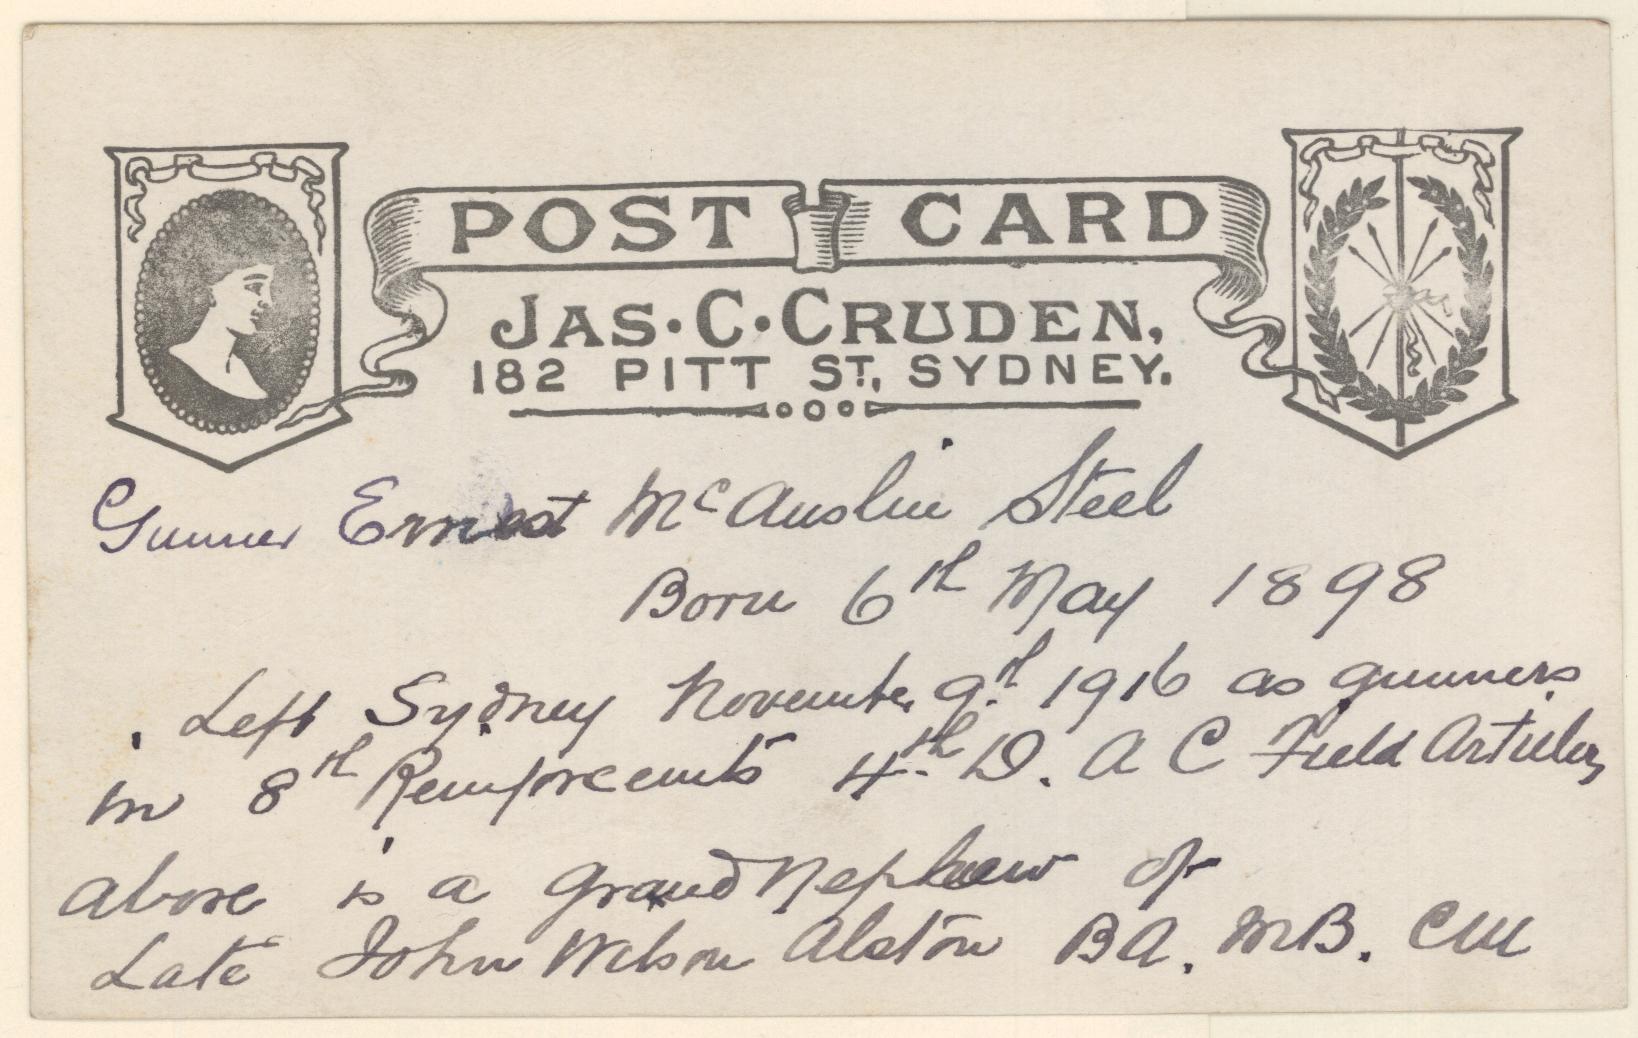 POST CARD
JAS. C. CRUDEN,
182 PITT ST., SYDNEY.
Gunner Ernest McAuslin Steel
Born 6th May 1898
Left Sydney November 9th 1916 as gunners
in 8th Reinforcemts 4th D. A C Field Artillery
above is a Grand Nephew of
Late John Wilson Alston BA. MB. CM